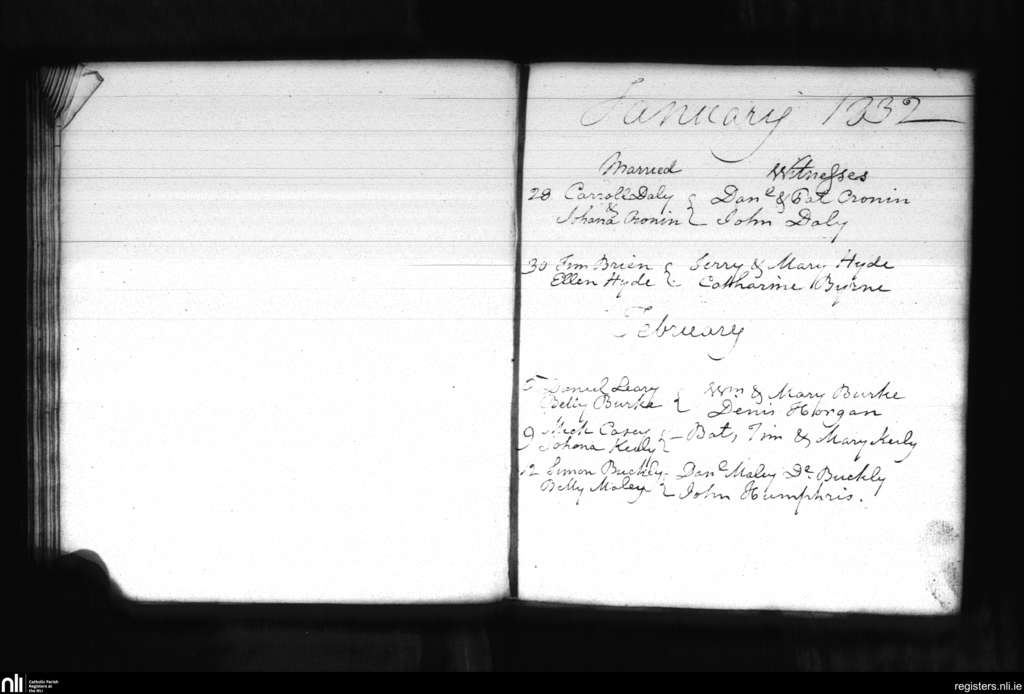 January 1832
Married Witnesses
28 Carroll Daly Danl & Pat Cronin
& Johana Cronin John Daly
30 Tim Brien Jerry & Mary Hyde
Ellen Hyde Catharine Byrne
February
5 Daniel Leary Wm & Mary Burke
Betty Burke Denis Horgan
9 Mick Casey Bat, Tim & Mary Keily
Johana Keily
12 Simon Buckley Danl Maley Dl Buckly
Betty Maley John Humphris.
nli Catholic Parish
Registers at
the NLI
registers.nli.ie